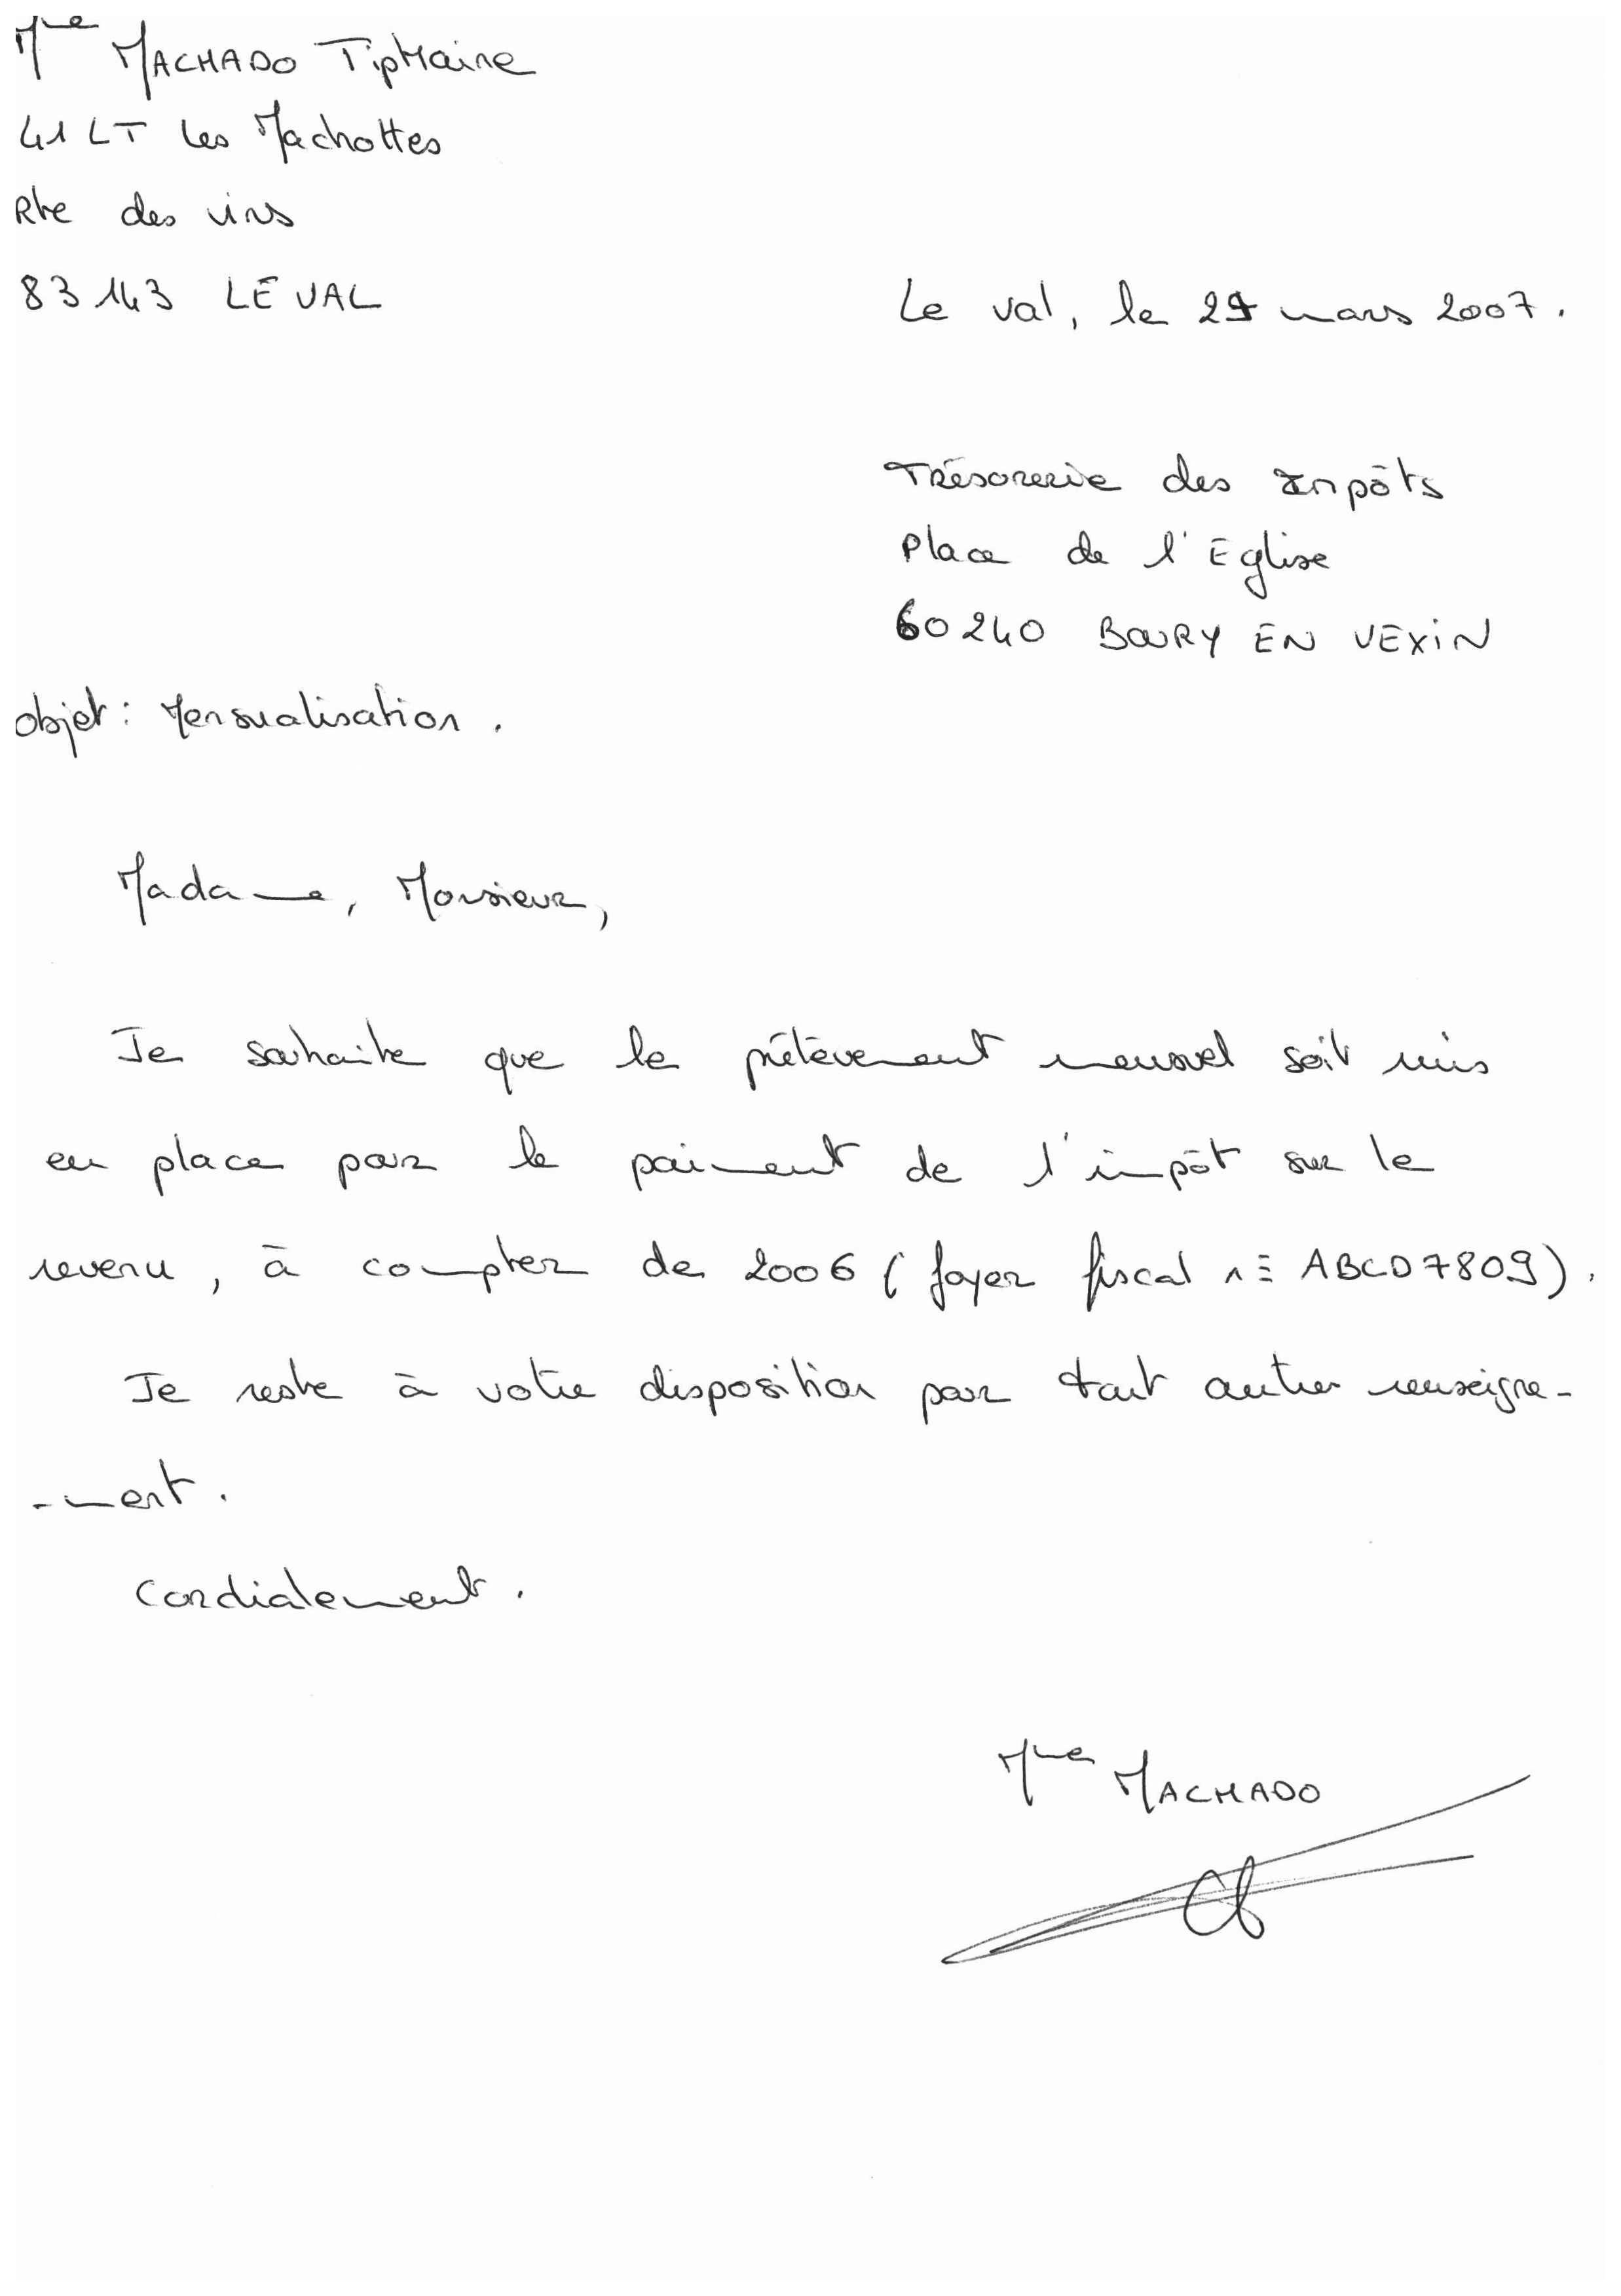 Mme MACHADO Tiphaine
41 LT les Machottes
Rte des vins
83143 LE VAL
Le val, le 29 mars 2007.
Trésorerie des Impôts
Place de l'Eglise
60240 BOURY EN VEXIN
objet : Mensualisation.
Madame, Monsieur,
Je souhaite que le prélèvement mensuel soit mis
en place pour le paiment de l'impôt sur le
revenu, à compter de 2006 (foyer fiscal n° ABCD7809).
Je reste à votre disposition pour tout autre renseigne-
-ment.
Cordialement.
Mme MACHADO